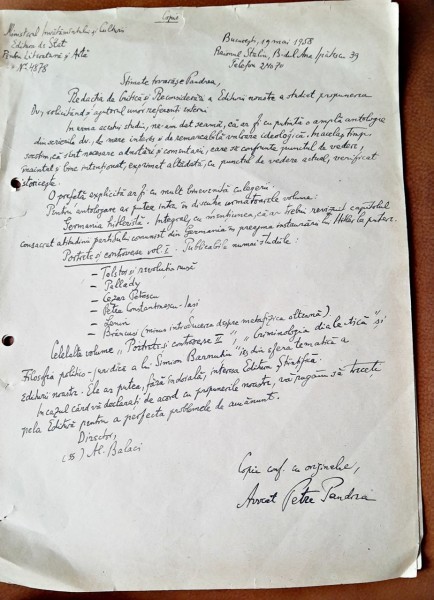 Copie
Ministerul Învățământului și Culturii
București, 19 mai 1958
Editura de Stat
Raionul Stalin, B-dul Ana Ipătescu 39
Pentru Literatură și Artă
Telefon 24070
Nº 4878
Stimate tovarășe Pandrea,
Redacția de Critică și Reconsiderări a Editurii noastre a studiat propunerea
Dv., solicitând și ajutorul unor referenți externi
În urma acestui studiu, ne-am dat seamă, că ar fi cu putință o amplă antologie
din scrierile dv., de mare interes și de remarcabilă valoare ideologică. În același timp
susținem, că sînt necesare adnotări și comentarii, care să confrunte punctul de vedere,
bine intenționat, exprimat altădată, cu punctele de vedere actual, verificat
istoricește.
O prefață explicită ar fi cu mult binevenită culegerii.
Pentru antologare ar putea intra în discuție următoarele volume:
Germania hitleristă. Integral, cu insistența, că ar trebui revizuit capitolul
consacrat atitudinii partidului comunist din Germania în preajma instaurării lui Hitler la putere.
Portrete și controverse vol. I. Publicabile numai studiile:
– Tolstoi și revoluția rusă
– Pallady
– Cezar Petrescu
– Petre Constantinescu-Iași
– Lenin
– Brâncuși (minus introducerea despre metafizica olteană).
Celelalte volume „Portrete și controverse II", „Criminologia dialectică" și
Filosofia politico-juridică a lui Simion Barnuțiu" ies din sfera tematică a
Editurii noastre. Ele ar putea, fără îndoială, interesa Editura Științifică.
În cazul când vă declarați de acord cu propunerile noastre, vă rugăm să treceți
pela Editură pentru a perfecta problemele de amănunt.
Director,
(ss) Al. Balaci
Copie conf. cu originalul,
Avocat Petre Pandrea